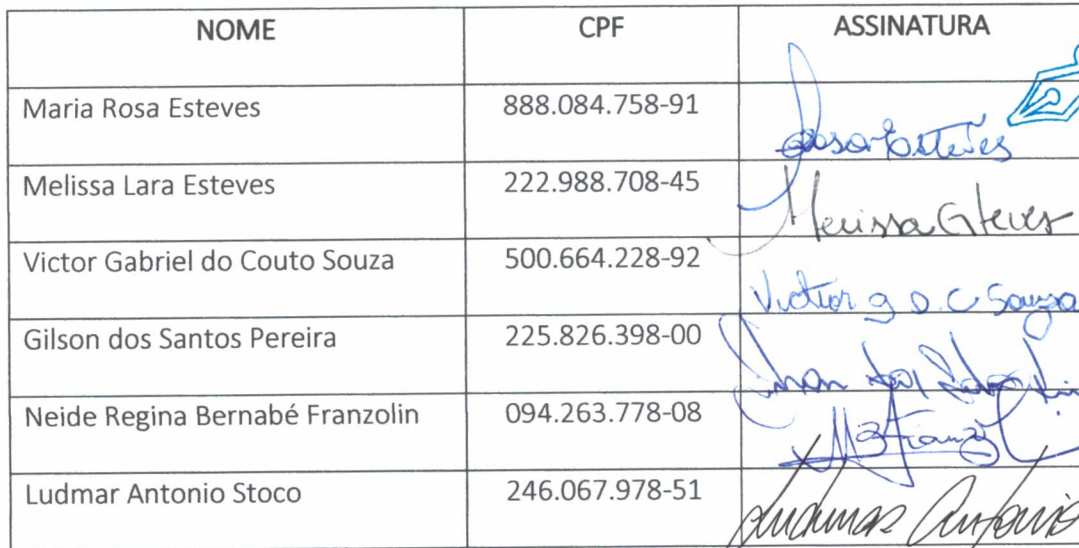 NOME CPF ASSINATURA
Maria Rosa Esteves 888.084.758-91 Rosa Esteves
Melissa Lara Esteves 222.988.708-45 Melissa Esteves
Victor Gabriel do Couto Souza 500.664.228-92 Victor g D. C Souza
Gilson dos Santos Pereira 225.826.398-00
Neide Regina Bernabé Franzolin 094.263.778-08
Ludmar Antonio Stoco 246.067.978-51 Ludmar Antonio